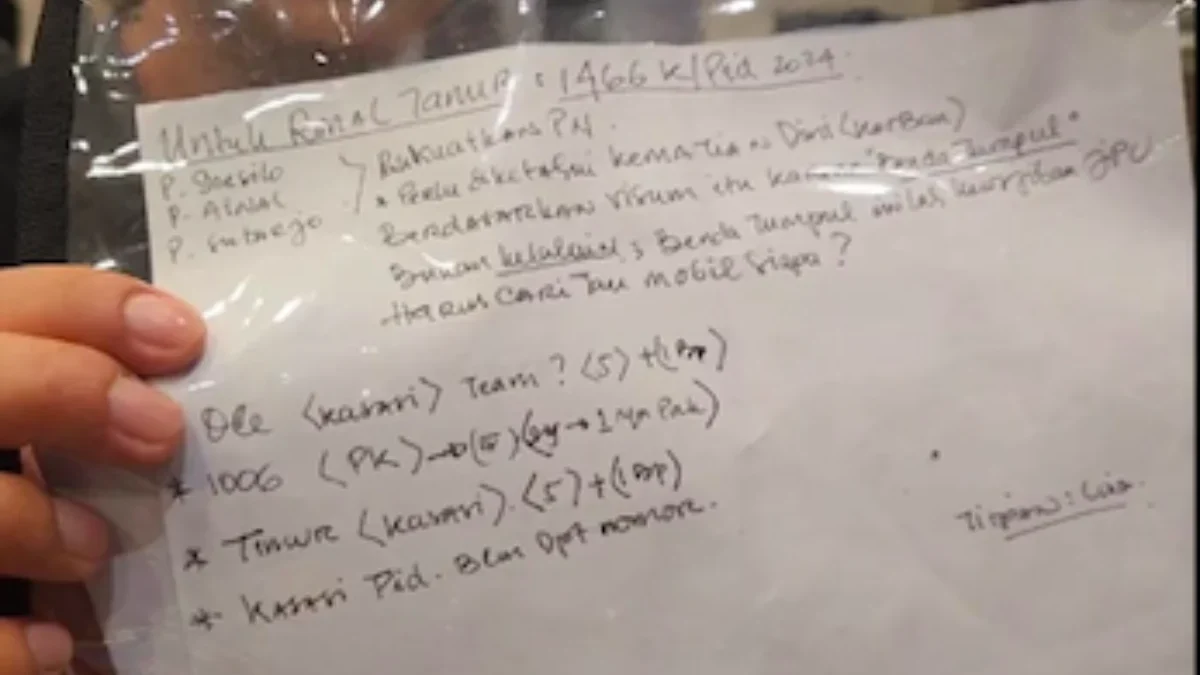 Untuk Ronal Tanur : 1466 K/Pid 2024.
P. Soesilo
P. Ainal
P. Sutarjo
Dikuatkan PN.
* Perlu diketahui kematian Dini (korban)
Berdasarkan visum itu karena "Benda Tumpul"
Bukan ; Benda Tumpul inilah kewajiban JPU
Harus cari Tau mobil siapa?
(Kasasi) Team? (5) +
* 1006 (PK)
* Timur (Kasasi). (5) +
* Kasasi Pid. Blm Dpt nomor.